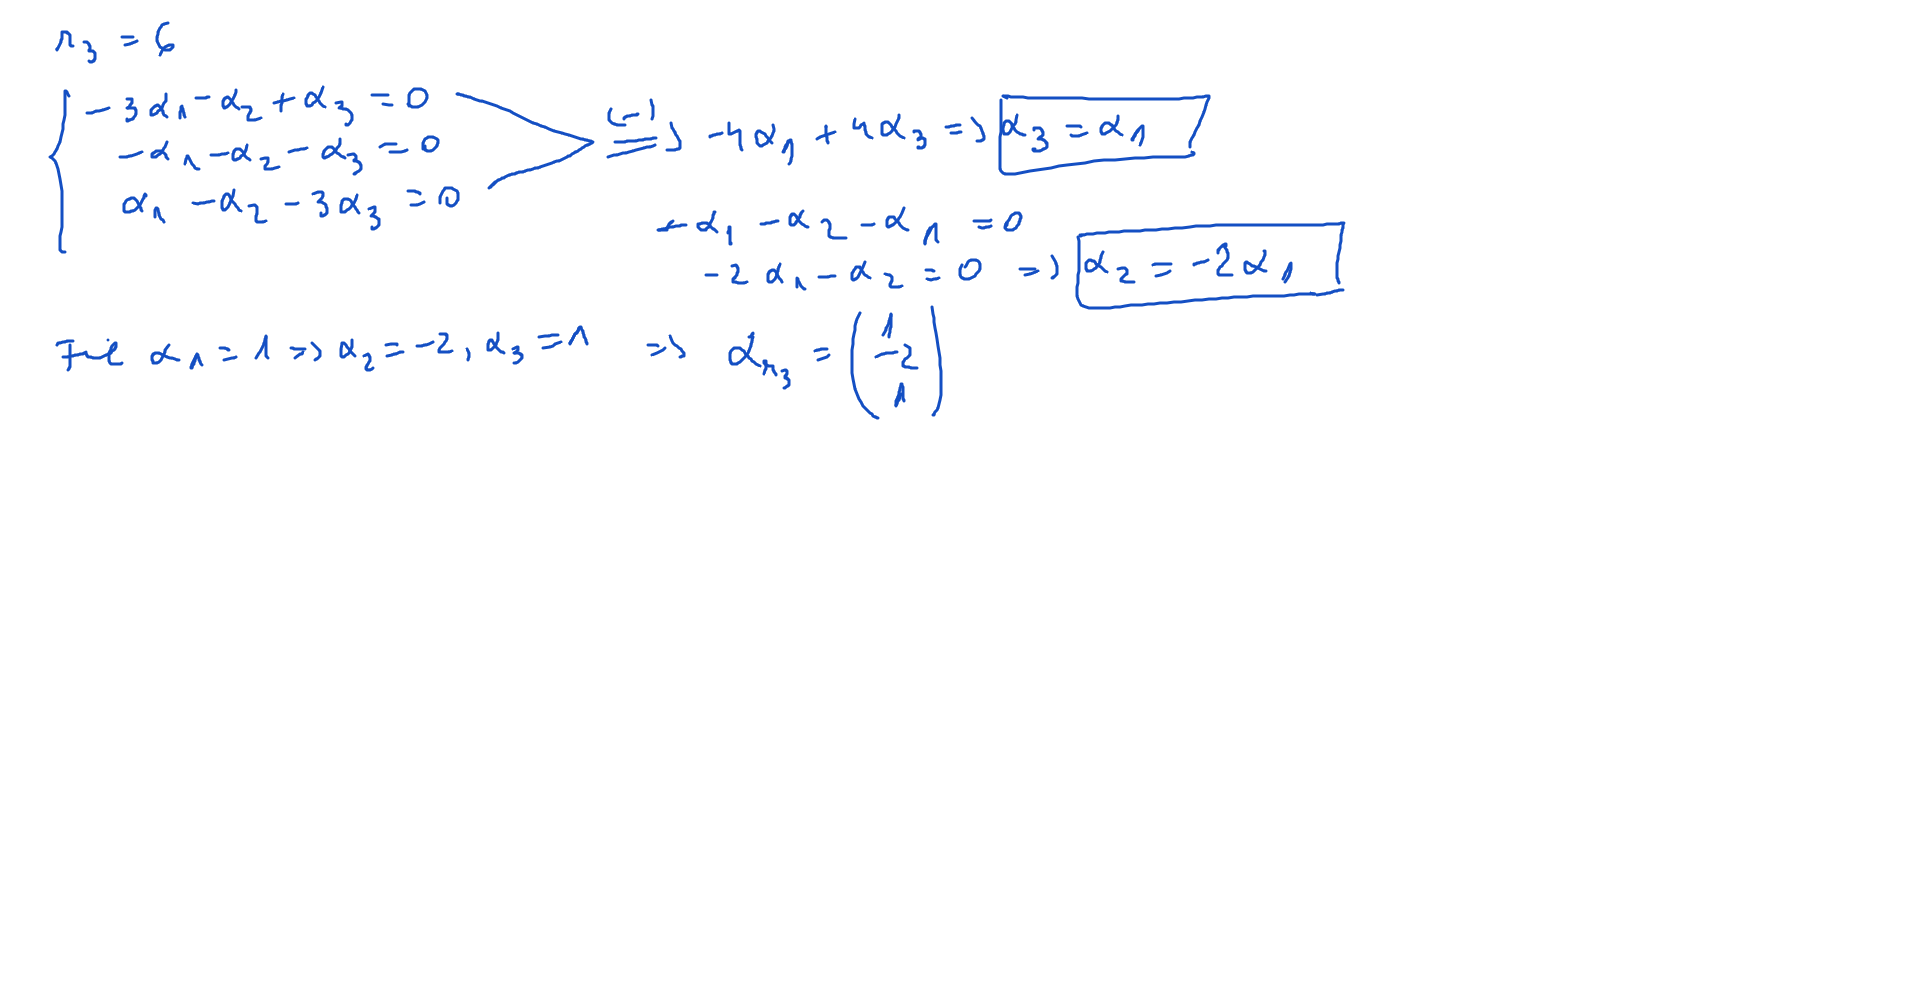 r₃ = 6
-3α₁ - α₂ + α₃ = 0 (-) ⟹ -4α₁ + 4α₃ => α₃ = α₁
-α₁ - α₂ - α₃ = 0
α₁ - α₂ - 3α₃ = 0
-α₁ - α₂ - α₁ = 0
-2α₁ - α₂ = 0 => α₂ = -2α₁
Fie α₁ = 1 => α₂ = -2, α₃ = 1 => α_r₃ = (1
-2
1)